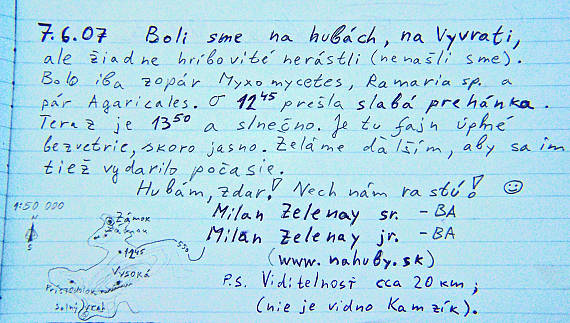 7.6.07 Boli sme na hubách, na Vyvrati,
ale žiadne hríbovité nerástli (nenašli sme).
Bolo iba zopár Myxomycetes, Ramaria sp. a
pár Agaricales. O 12⁴⁵ prešla slabá prehánka.
Teraz je 13⁵⁰ a slnečno. Je tu fajn úplné
bezvetrie, skoro jasno. Želáme ďalším, aby sa im
tiež vydarilo počasie.
Hubám, zdar! Nech nám rastú! ☺
1:50 000
N
S
Zámok
1245
550
Vysoká
Milan Zelenay sr. - BA
Milan Zelenay jr. - BA
(www.nahuby.sk)
P.S. Viditeľnosť cca 20 km;
(nie je vidno Kamzík).